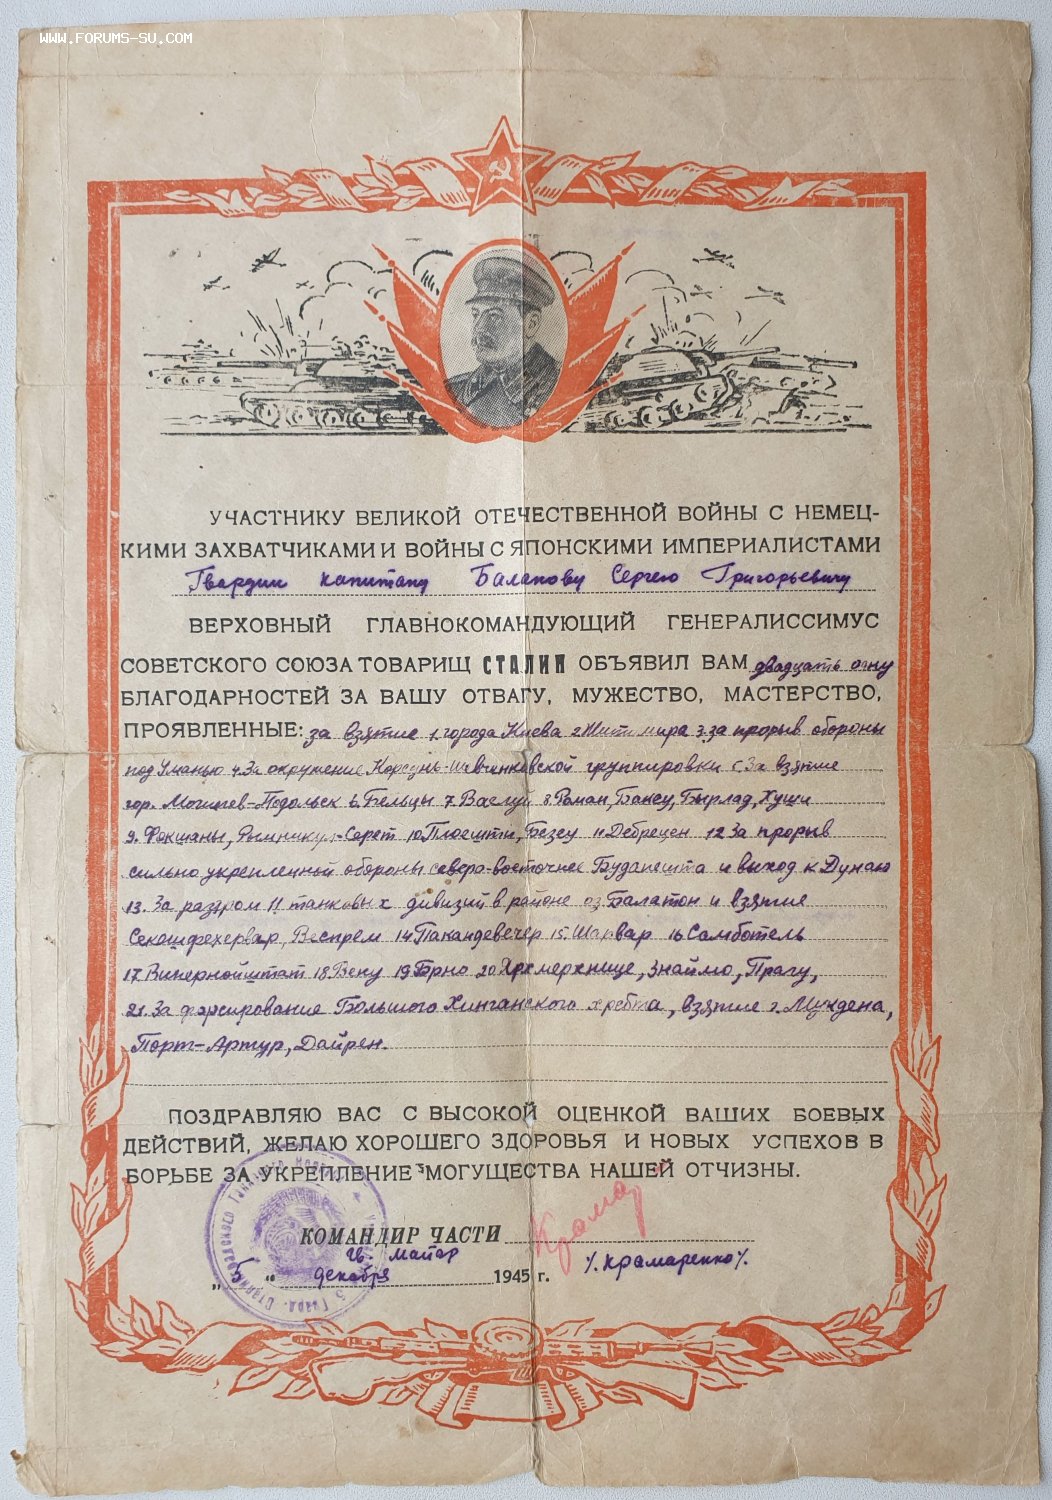 WWW.FORUMS-SU.COM
УЧАСТНИКУ ВЕЛИКОЙ ОТЕЧЕСТВЕННОЙ ВОЙНЫ С НЕМЕЦ-
КИМИ ЗАХВАТЧИКАМИ И ВОЙНЫ С ЯПОНСКИМИ ИМПЕРИАЛИСТАМИ
Гвардии капитану Балапову Сергею Григорьевичу
ВЕРХОВНЫЙ ГЛАВНОКОМАНДУЮЩИЙ ГЕНЕРАЛИССИМУС
СОВЕТСКОГО СОЮЗА ТОВАРИЩ СТАЛИН ОБЪЯВИЛ ВАМ двадцать одну
БЛАГОДАРНОСТЕЙ ЗА ВАШУ ОТВАГУ, МУЖЕСТВО, МАСТЕРСТВО,
ПРОЯВЛЕННЫЕ: за взятие 1. города Киева 2 Житомира 3. за прорыв обороны
под Уманью 4. За окружение Корсунь-Шевченковской группировки 5. За взятие
гор. Могилев-Подольск 6. Бельцы 7. Васлуй 8. Роман, Бакеу, Бырлад, Хуши
9. Фокшаны, Рымникул-Серет 10. Плоешти, Безеу 11 Дебрецен 12 За прорыв
сильно укрепленной обороны северо-восточнее Будапешта и выход к Дунаю
13. За разгром 11 танковых дивизий в районе оз. Балатон и взятие
Секешфехервар, Веспрем 14 Пакандевечер 15. Шарвар 16 Сомботель
17. Винернойштат 18. Вену 19 Брно 20 Ярмержице, Знаймо, Прагу,
21. За форсирование Большого Хинганского хребта, взятие г. Мукдена,
Порт-Артур, Дайрен.
ПОЗДРАВЛЯЮ ВАС С ВЫСОКОЙ ОЦЕНКОЙ ВАШИХ БОЕВЫХ
ДЕЙСТВИЙ, ЖЕЛАЮ ХОРОШЕГО ЗДОРОВЬЯ И НОВЫХ УСПЕХОВ В
БОРЬБЕ ЗА УКРЕПЛЕНИЕ МОГУЩЕСТВА НАШЕЙ ОТЧИЗНЫ.
КОМАНДИР ЧАСТИ
гв. майор
/. Крамаренко /.
„ 6 “ декабря 1945 г.